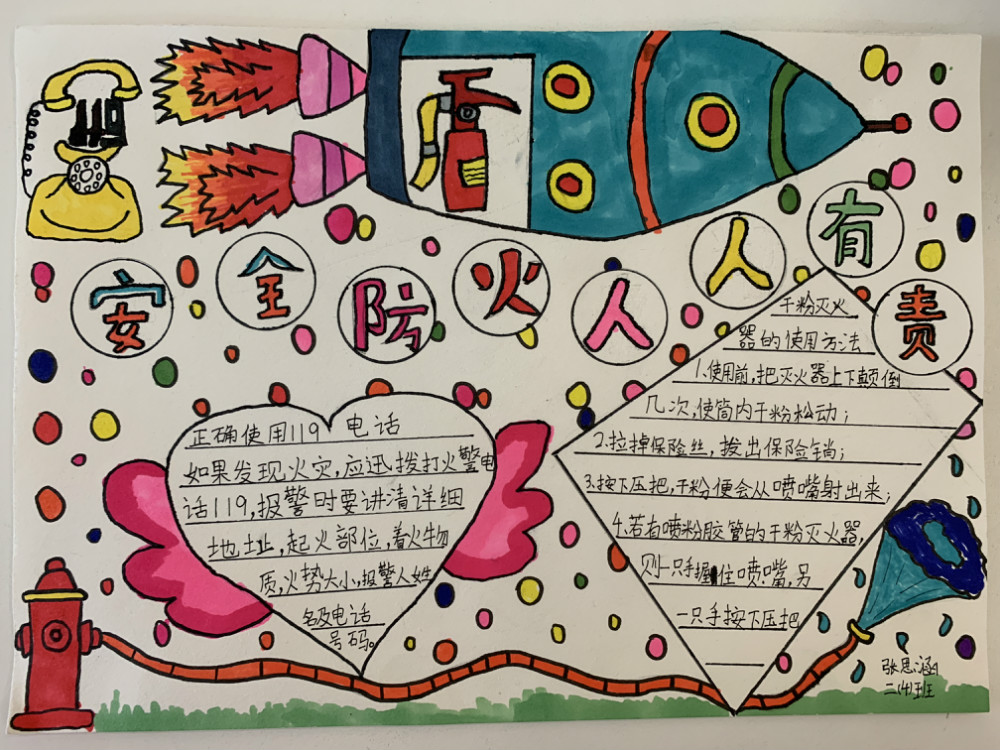 119
安全防火人人有责
正确使用119 电话
如果发现火灾,应迅拨打火警电
话119,报警时要讲清详细
地址,起火部位,着火物
质,火势大小,报警人姓
名及电话
号码。
干粉灭火
器的使用方法
1.使用前,把灭火器上下颠倒
几次,使筒内干粉松动;
2.拉掉保险丝,拔出保险销;
3.按下压把,干粉便会从喷嘴射出来;
4.若有喷粉胶管的干粉灭火器,
则一只手握住喷嘴,另
一只手按下压把
张思涵
二(4)班